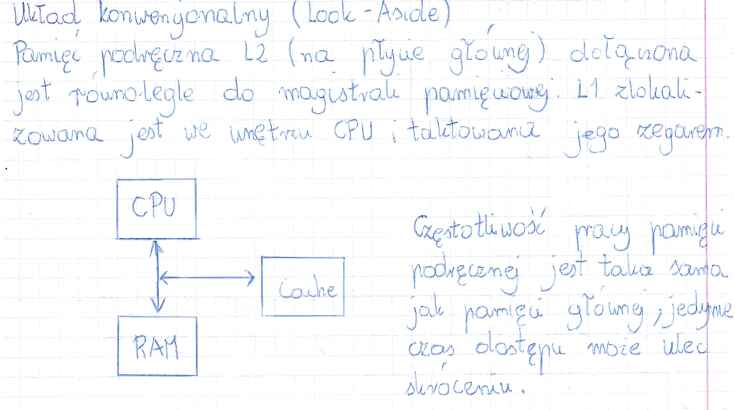 Układ konwencjonalny (Look-Aside)
Pamięć podręczna L2 (na płycie głównej) dołączona
jest równolegle do magistrali pamięciowej. L1 zlokali-
zowana jest we wnętrzu CPU i taktowana jego zegarem.
CPU
Cache
RAM
Częstotliwość pracy pamięci
podręcznej jest taka sama
jak pamięci głównej, jedynie
czas dostępu może ulec
skróceniu.